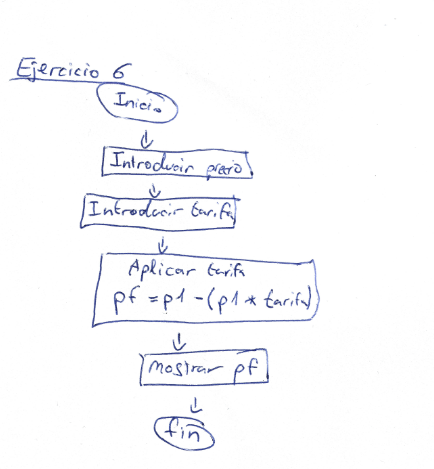 Ejercicio 6
Inicio
Introducir precio
Introducir tarifa
Aplicar tarifa
pf = p1 - (p1 * tarifa)
mostrar pf
fin